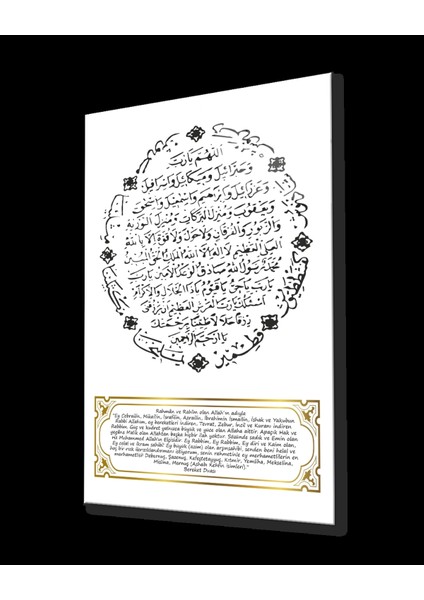 اللهم يارب
وجبرائيل وميكائيل واسرافيل
وعزرائيل وابراهيم واسمعيل واسحق
ويعقوب ومنزل البركات ومنزل التورية
والزبور والفرقان ولاحول ولاقوة الا بالله
العلي العظيم لا اله الا الله الملك الحق المبين
محمد رسول الله صادق الوعد الامين يارب
يارب ياحي ياقيوم ياذا الجلال والاكرام
اسئلك يارب العرش العظيم ان ترزقني
رزقا حلالا طيبا برحمتك
يا ارحم الراحمين
قطمير
Rahmân ve Rahîm olan Allah'ın adıyla
"Ey Cebrailin, Mikailin, İsrafilin, Azrailin, İbrahimin İsmailin, İshak ve Yakubun
Rabbi Allahım, ey bereketleri indiren, Tevrat, Zebur, İncil ve Kuranı indiren
Rabbim. Güç ve kudret yalnızca büyük ve yüce olan Allaha aittir. Apaçık Hak ve
yegâne Malik olan Allahtan başka hiçbir ilah yoktur. Sözünde sadık ve Emin olan
Hz Muhammed Allah'ın Elçisidir. Ey Rabbim, Ey Rabbim, Ey diri ve Kaim olan,
Ey celal ve ikram sahibi! Ey büyük (azim) olan arşınsahibi, senden beni helal ve
hoş bir rızık ile rızıklandırmanı istiyorum, senin rahmetinle ey merhametlilerin en
merhametlisi! Debernuş, Şazenuş, Kefeştetayyuş, Kıtmir, Yemliha, Mekselina,
Mislina, Mernuş (Ashabı Kehfin isimleri)."
Bereket Duası